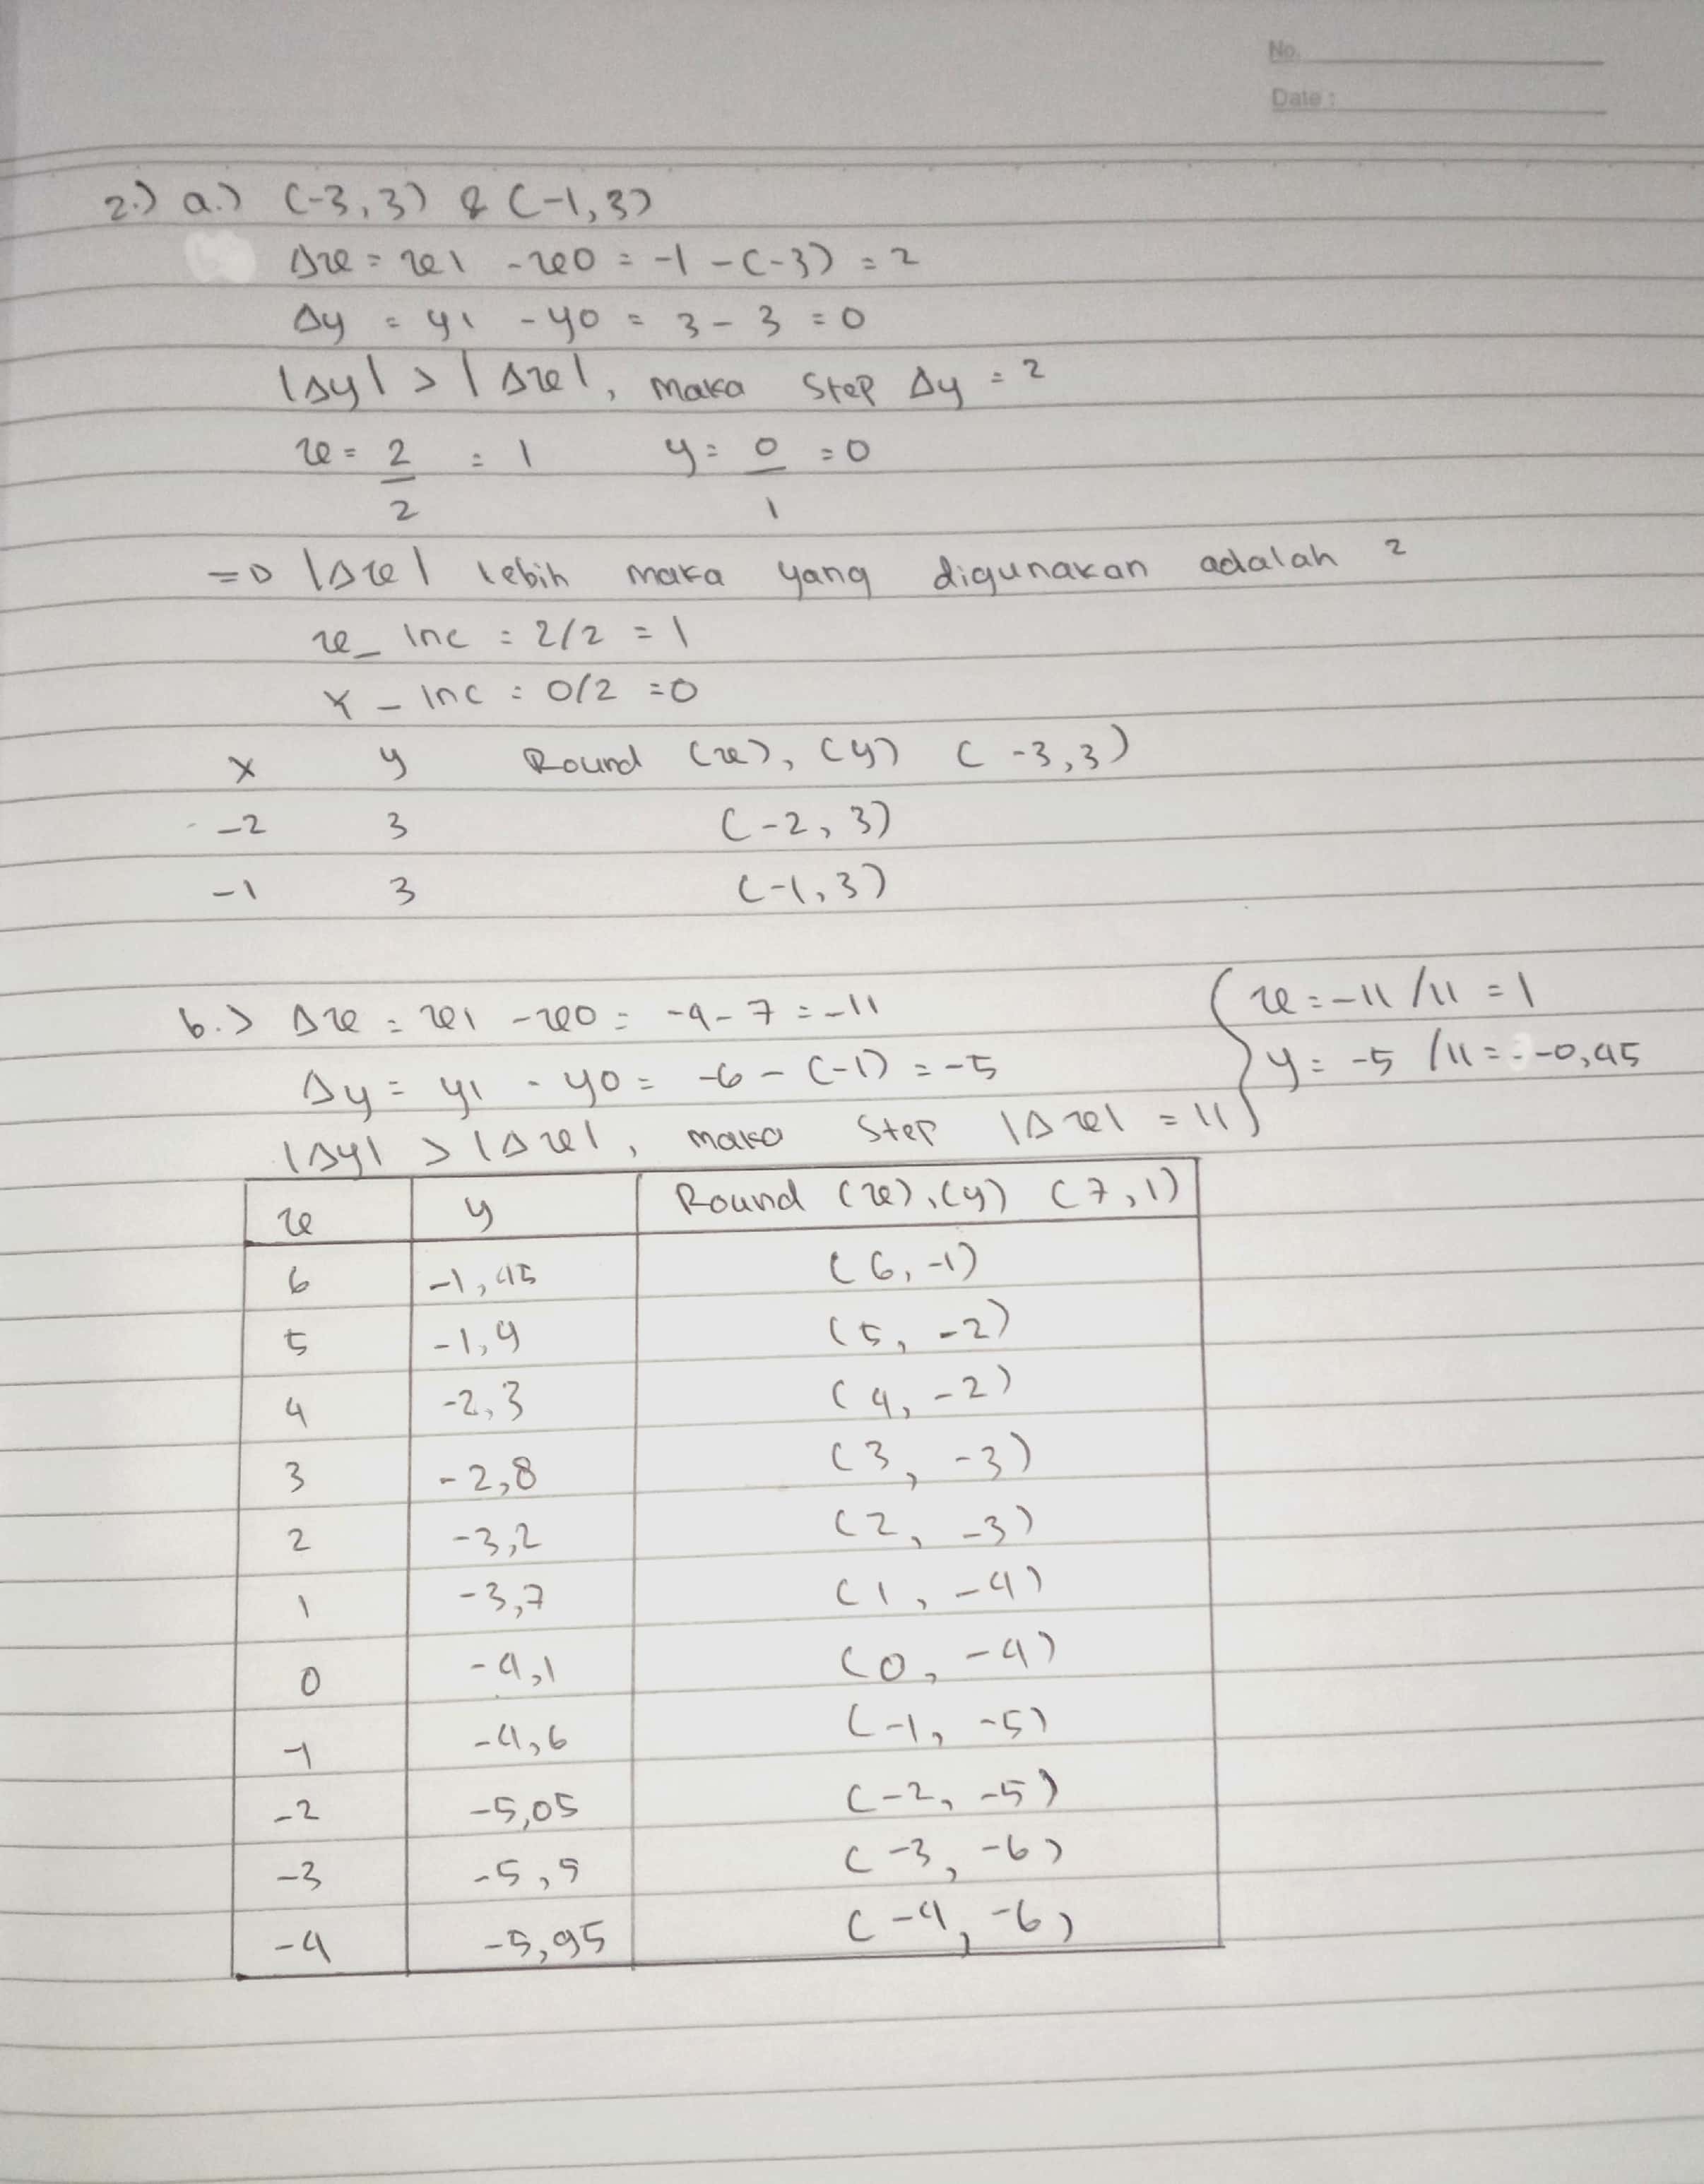 No.
Date :
2.) a.) (-3,3) & (-1,3)
Δx = x1 - x0 = -1 - (-3) = 2
Δy = y1 - y0 = 3 - 3 = 0
|Δy| > |Δx|, maka Step Δy = 2
x = 2/2 = 1 y = 0/1 = 0
=> |Δx| lebih maka yang digunakan adalah 2
x_Inc = 2/2 = 1
Y_Inc = 0/2 = 0
x y Round (x), (y) (-3,3)
-2 3 (-2, 3)
-1 3 (-1, 3)
b.) Δx = x1 - x0 = -4 - 7 = -11
Δy = y1 - y0 = -6 - (-1) = -5
|Δy| > |Δx|, maka Step |Δx| = 11
x = -11/11 = 1
y = -5/11 = -0,45
x y Round (x), (y) (7,1)
6 -1,45 (6, -1)
5 -1,9 (5, -2)
4 -2,3 (4, -2)
3 -2,8 (3, -3)
2 -3,2 (2, -3)
1 -3,7 (1, -4)
0 -4,1 (0, -4)
-1 -4,6 (-1, -5)
-2 -5,05 (-2, -5)
-3 -5,5 (-3, -6)
-4 -5,95 (-4, -6)